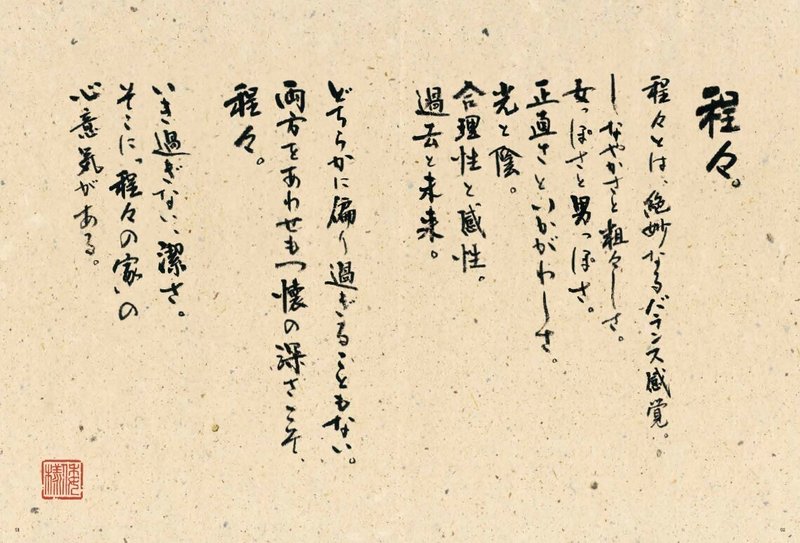 程々。
程々とは、絶妙なるバランス感覚。
しなやかさと粗々しさ。
女っぽさと男っぽさ。
正直さといかがわしさ。
光と陰。
合理性と感性。
過去と未来。
どちらかに偏り過ぎることもない。
両方をあわせもつ懐の深さこそ、
程々。
いき過ぎない、潔さ。
そこに、「程々の家」の
心意気がある。